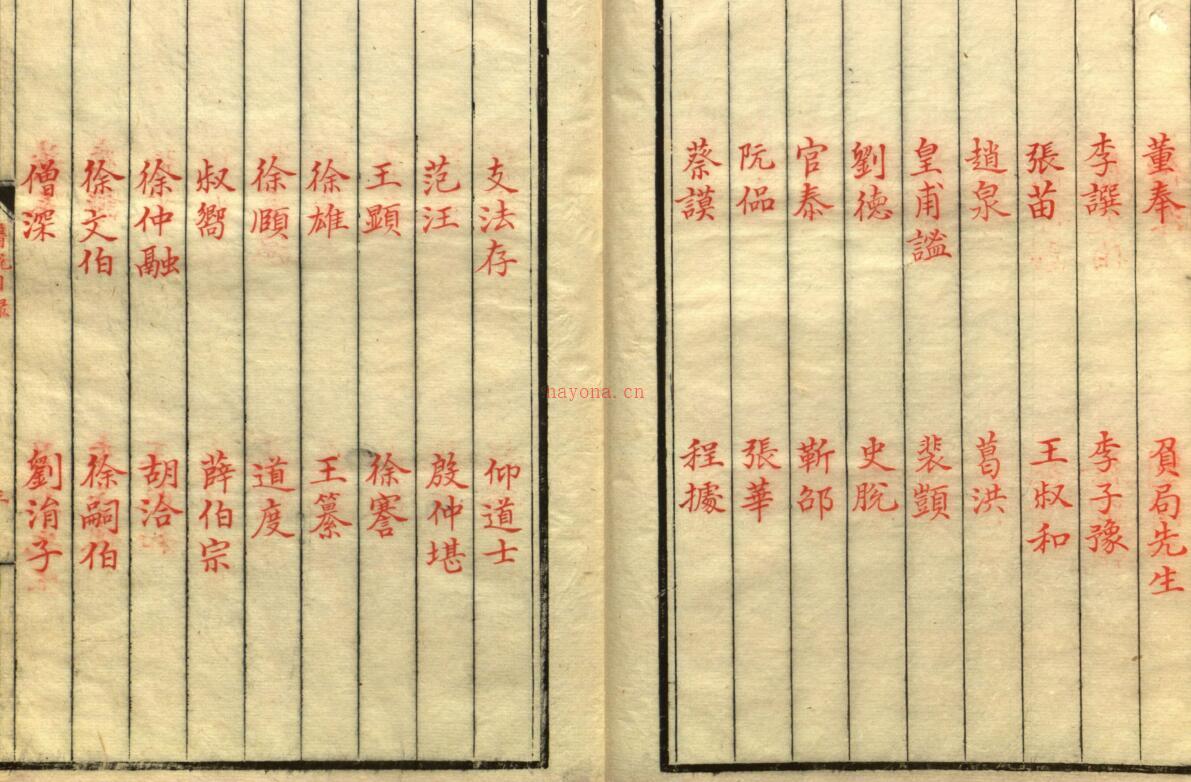 董奉 負局先生
李譔 李子豫
張苗 王叔和
趙泉 葛洪
皇甫謐 裴頠
劉德 史脫
官泰 靳邵
阮偘 張華
蔡謨 程據
支法存 仰道士
范汪 殷仲堪
王顯 徐謇
徐雄 王纂
徐頤 道度
叔嚮 薛伯宗
徐仲融 胡洽
徐文伯 徐嗣伯
僧深 劉涓子
hayona.cn